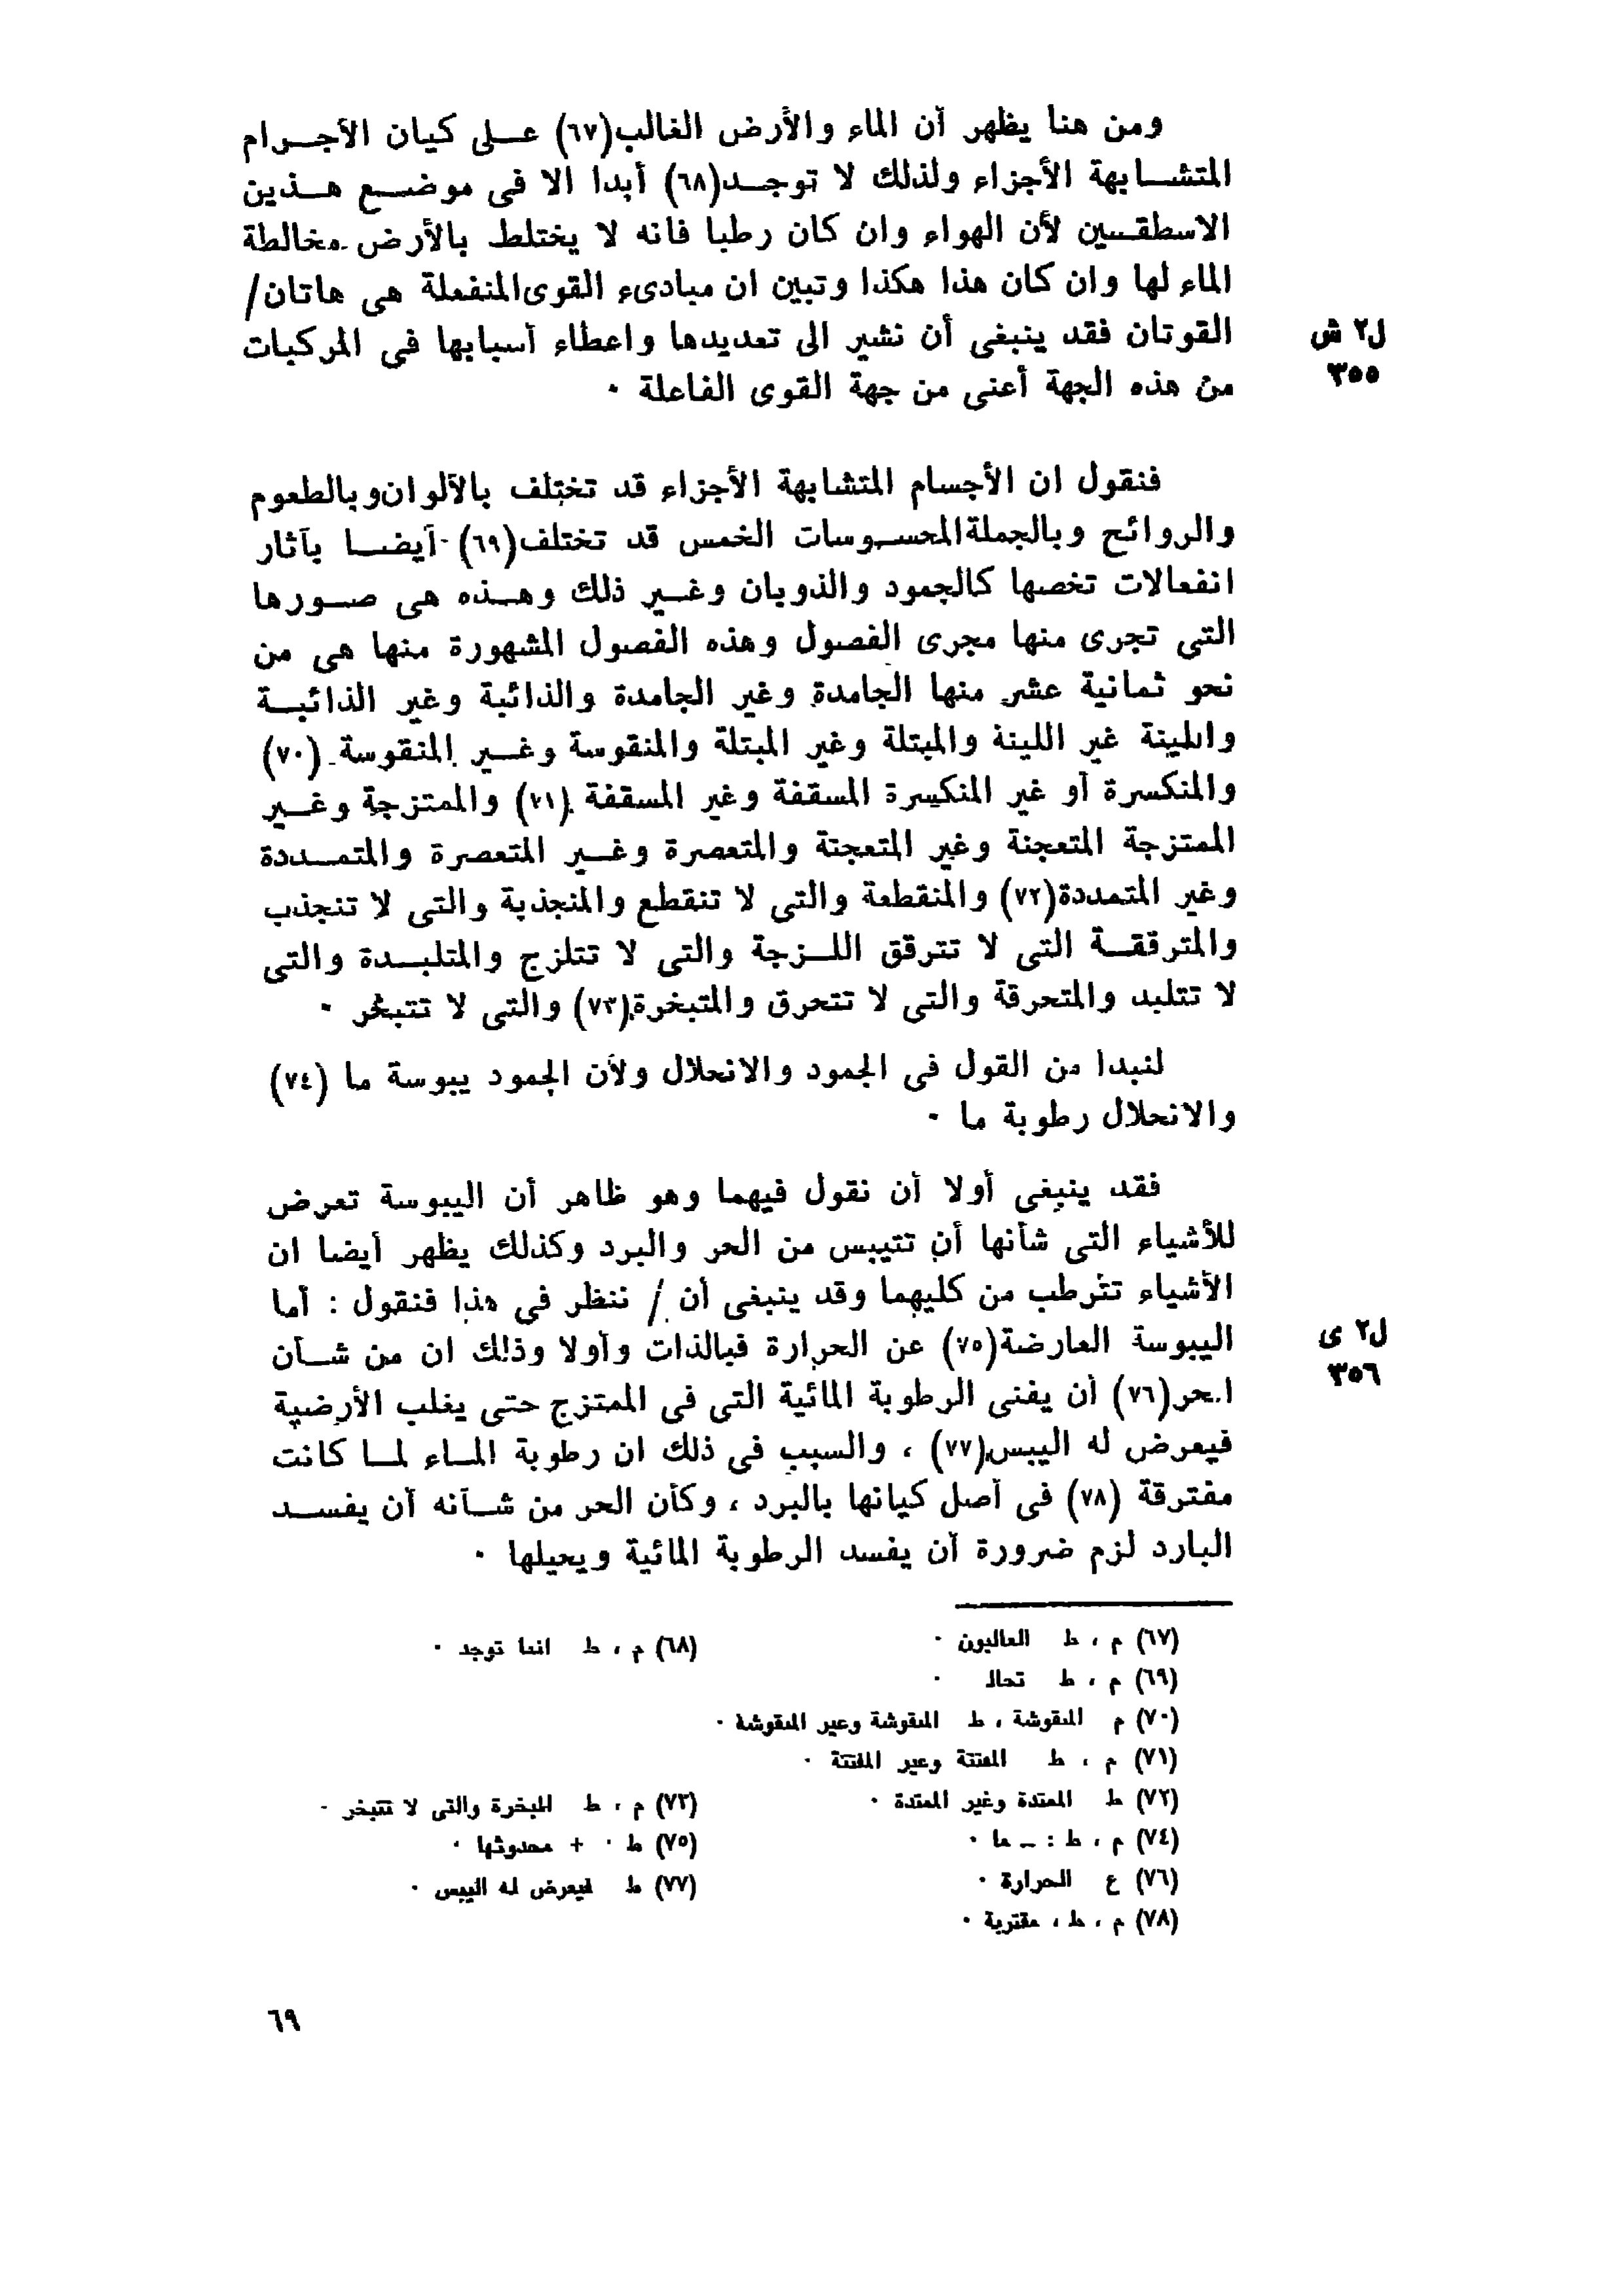 ومن هنا يظهر أن الماء والأرض الغالب(٦٧) على كيان الأجرام
المتشابهة الأجزاء ولذلك لا توجد(٦٨) أبدا الا فى موضع هذين
الاسطقسين لأن الهواء وان كان رطبا فانه لا يختلط بالأرض مخالطة
الماء لها وان كان هذا هكذا وتبين ان مبادىء القوى المنفعلة هى هاتان/
القوتان فقد ينبغى أن نشير الى تعديدها واعطاء أسبابها فى المركبات
ل٢ ش
٣٥٥
من هذه الجهة أعنى من جهة القوى الفاعلة ٠
فنقول ان الأجسام المتشابهة الأجزاء قد تختلف بالألوان وبالطعوم
والروائح وبالجملة المحسوسات الخمس قد تختلف(٦٩) أيضا بآثار
انفعالات تخصها كالجمود والذوبان وغير ذلك وهذه هى صورها
التى تجرى منها مجرى الفصول وهذه الفصول المشهورة منها هى من
نحو ثمانية عشر منها الجامدة وغير الجامدة والذائبة وغير الذائبة
والينة غير اللينة والمبتلة وغير المبتلة والمنقوسة وغير المنقوسة (٧٠)
والمنكسرة أو غير المنكسرة المسقفة وغير المسقفة (٧١) والممتزجة وغير
الممتزجة المتعجنة وغير المتعجتة والمتعصرة وغير المتعصرة والمتمددة
وغير المتمددة(٧٢) والمنقطعة والتى لا تنقطع والمنجذبة والتى لا تنجذب
والمترققة التى لا تترقق اللزجة والتى لا تتلزج والمتلبدة والتى
لا تتلبد والمتحرقة والتى لا تتحرق والمتبخرة(٧٣) والتى لا تتبخر ٠
لنبدأ من القول فى الجمود والانحلال ولأن الجمود يبوسة ما (٧٤)
والانحلال رطوبة ما ٠
فقد ينبغى أولا أن نقول فيهما وهو ظاهر أن اليبوسة تعرض
للأشياء التى شأنها أن تتيبس من الحر والبرد وكذلك يظهر أيضا ان
الأشياء تترطب من كليهما وقد ينبغى أن / ننظر فى هذا فنقول : أما
اليبوسة العارضة(٧٥) عن الحرارة فبالذات وأولا وذلك ان من شأن
ل٢ ى
٣٥٦
الحر(٧٦) أن يفنى الرطوبة المائية التى فى الممتزج حتى يغلب الأرضية
فيعرض له اليبس(٧٧) ، والسبب فى ذلك ان رطوبة الماء لما كانت
مفترقة (٧٨) فى أصل كيانها بالبرد ، وكأن الحر من شأنه أن يفسد
البارد لزم ضرورة أن يفسد الرطوبة المائية ويحيلها ٠
(٦٧) م ، ط العاليون ٠
(٦٨) م ، ط انما توجد ٠
(٦٩) م ، ط تحالـ ٠
(٧٠) م المنقوشة ، ط المنقوشة وغير المنقوشة ٠
(٧١) م ، ط المفتتة وغير المفتتة ٠
(٧٢) ط الممتدة وغير الممتدة ٠
(٧٣) م ، ط المبخرة والتى لا تتبخر ٠
(٧٤) م ، ط : ــ ما ٠
(٧٥) ط ٠ + محدوثها ٠
(٧٦) ع الحرارة ٠
(٧٧) ط فيعرض له اليبس ٠
(٧٨) م ، ط ، مقتربة ٠
٦٩